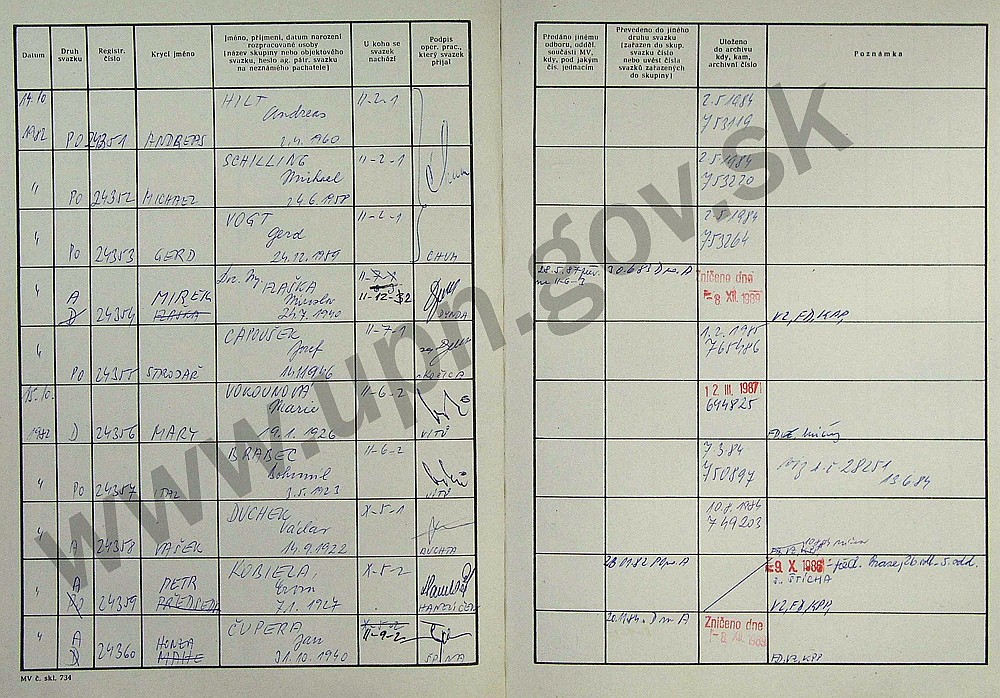 Datum
Druh svazku
Registr. číslo
Krycí jméno
Jméno, příjmení, datum narození
rozpracované osoby
(název skupiny nebo objektového
svazku, heslo ag. pátr. svazku
na neznámého pachatele)
U koho se
svazek
nachází
Podpis
oper. prac.,
který svazek
přijal
Předáno jinému
odboru, odděl.
součásti MV,
kdy, pod jakým
čís. jednacím
Převedeno do jiného
druhu svazku
(zařazen do skup.
svazku číslo
nebo uvést čísla
svazků zařazených
do skupiny)
Uloženo
do archivu
kdy, kam,
archivní číslo
Poznámka
14.10 HILT II-2-1 2.5.1984
Andreas 753119
1982 PO 24351 ANDREAS 2.4.1960
SCHILLING II-2-1 2.5.1984
Michael 753220
" PO 24352 MICHAEL 24.6.1958
VOGT II-2-1 2.5.1984
Gerd 753264
" PO 24353 GERD 24.12.1959 CHUM
IZAŠKA II-7-1 28.5.87 30.6.83 D na A Zničeno dne
A MIREK Miroslav II-12-32 na II-6-1 -8. XII. 1989
" D 24354 IZAŠKA 24.7.1940 DYNDA VZ, FD, KPP,
CAPOUŠEK II-7-1 1.2.1985
Josef 765486
" PO 24355 STRODAŘ 14.11.1946
15.10. VOKOUNOVÁ II-6-2 12. III. 1987
Marie 694825
1982 D 24356 MARY 19.1.1926 VÍTŮ
BRABEC II-6-2 7.3.84
Bohumil 750897 28251
" PO 24357 ITAL 3.5.1923 VÍTŮ 13.6.84
DUCHEK X-5-1 10.8.1984
Václav 749203
" A 24358 VAŠEK 14.9.1922 DUCHTA
KOBIELA, X-5-2 -9. X. 1986
A PETR Ervín
" PO 24359 PŘEDSEDA 7.1.1927 HAMPLÍČEK VZ, FD, KPP,
ČUPERA X-5-2 20.11.84 D na A Zničeno dne
A HONZA Jan II-9-2 -8. XII. 1989
" D 24360 31.10.1940 ŠPINA FD, VZ, KPP
MV č. skl. 734
www.upn.gov.sk